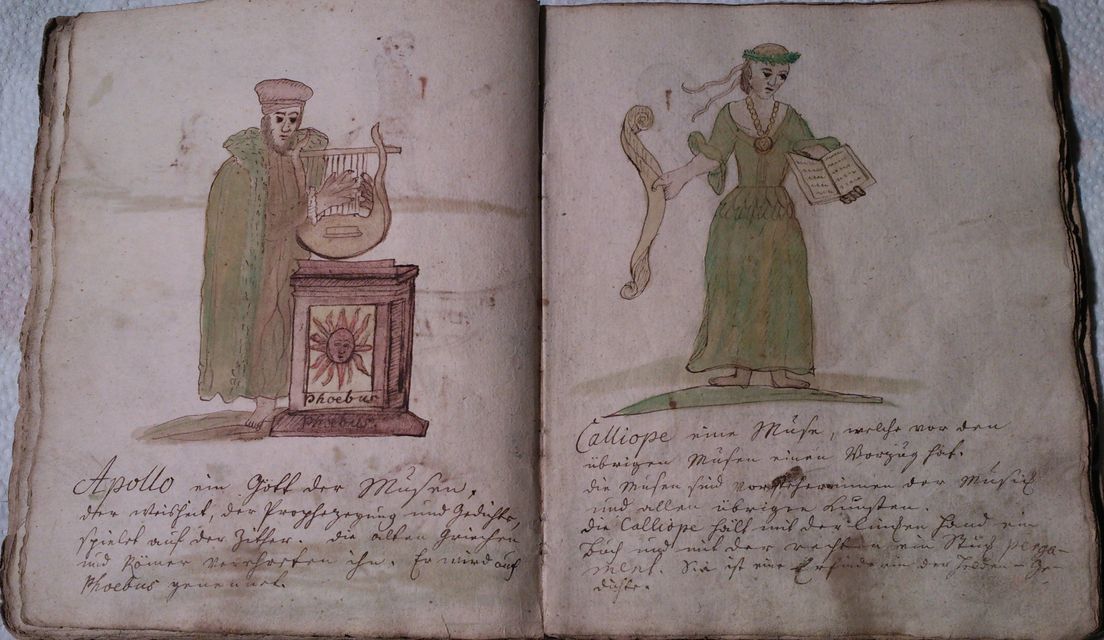 Phoebus
Phoebus.
Apollo ein Gott der Musen,
der Weisheit, der Prophezeyung und Gedichte,
spielet auf der Zither. die alten Griechen
und Römer verehrten ihn. Er wird auch
Phoebus genennet.
Calliope eine Muse, welche vor den
übrigen Musen einen Vorzug hat.
die Musen sind Vorsteherinnen der Musick
und allen übrigen Künsten.
die Calliope hält mit der lincken Hand ein
Buch und mit der rechten ein Stück perga-
ment. Sie ist eine Erfinderin der Helden-Ge-
dichte.